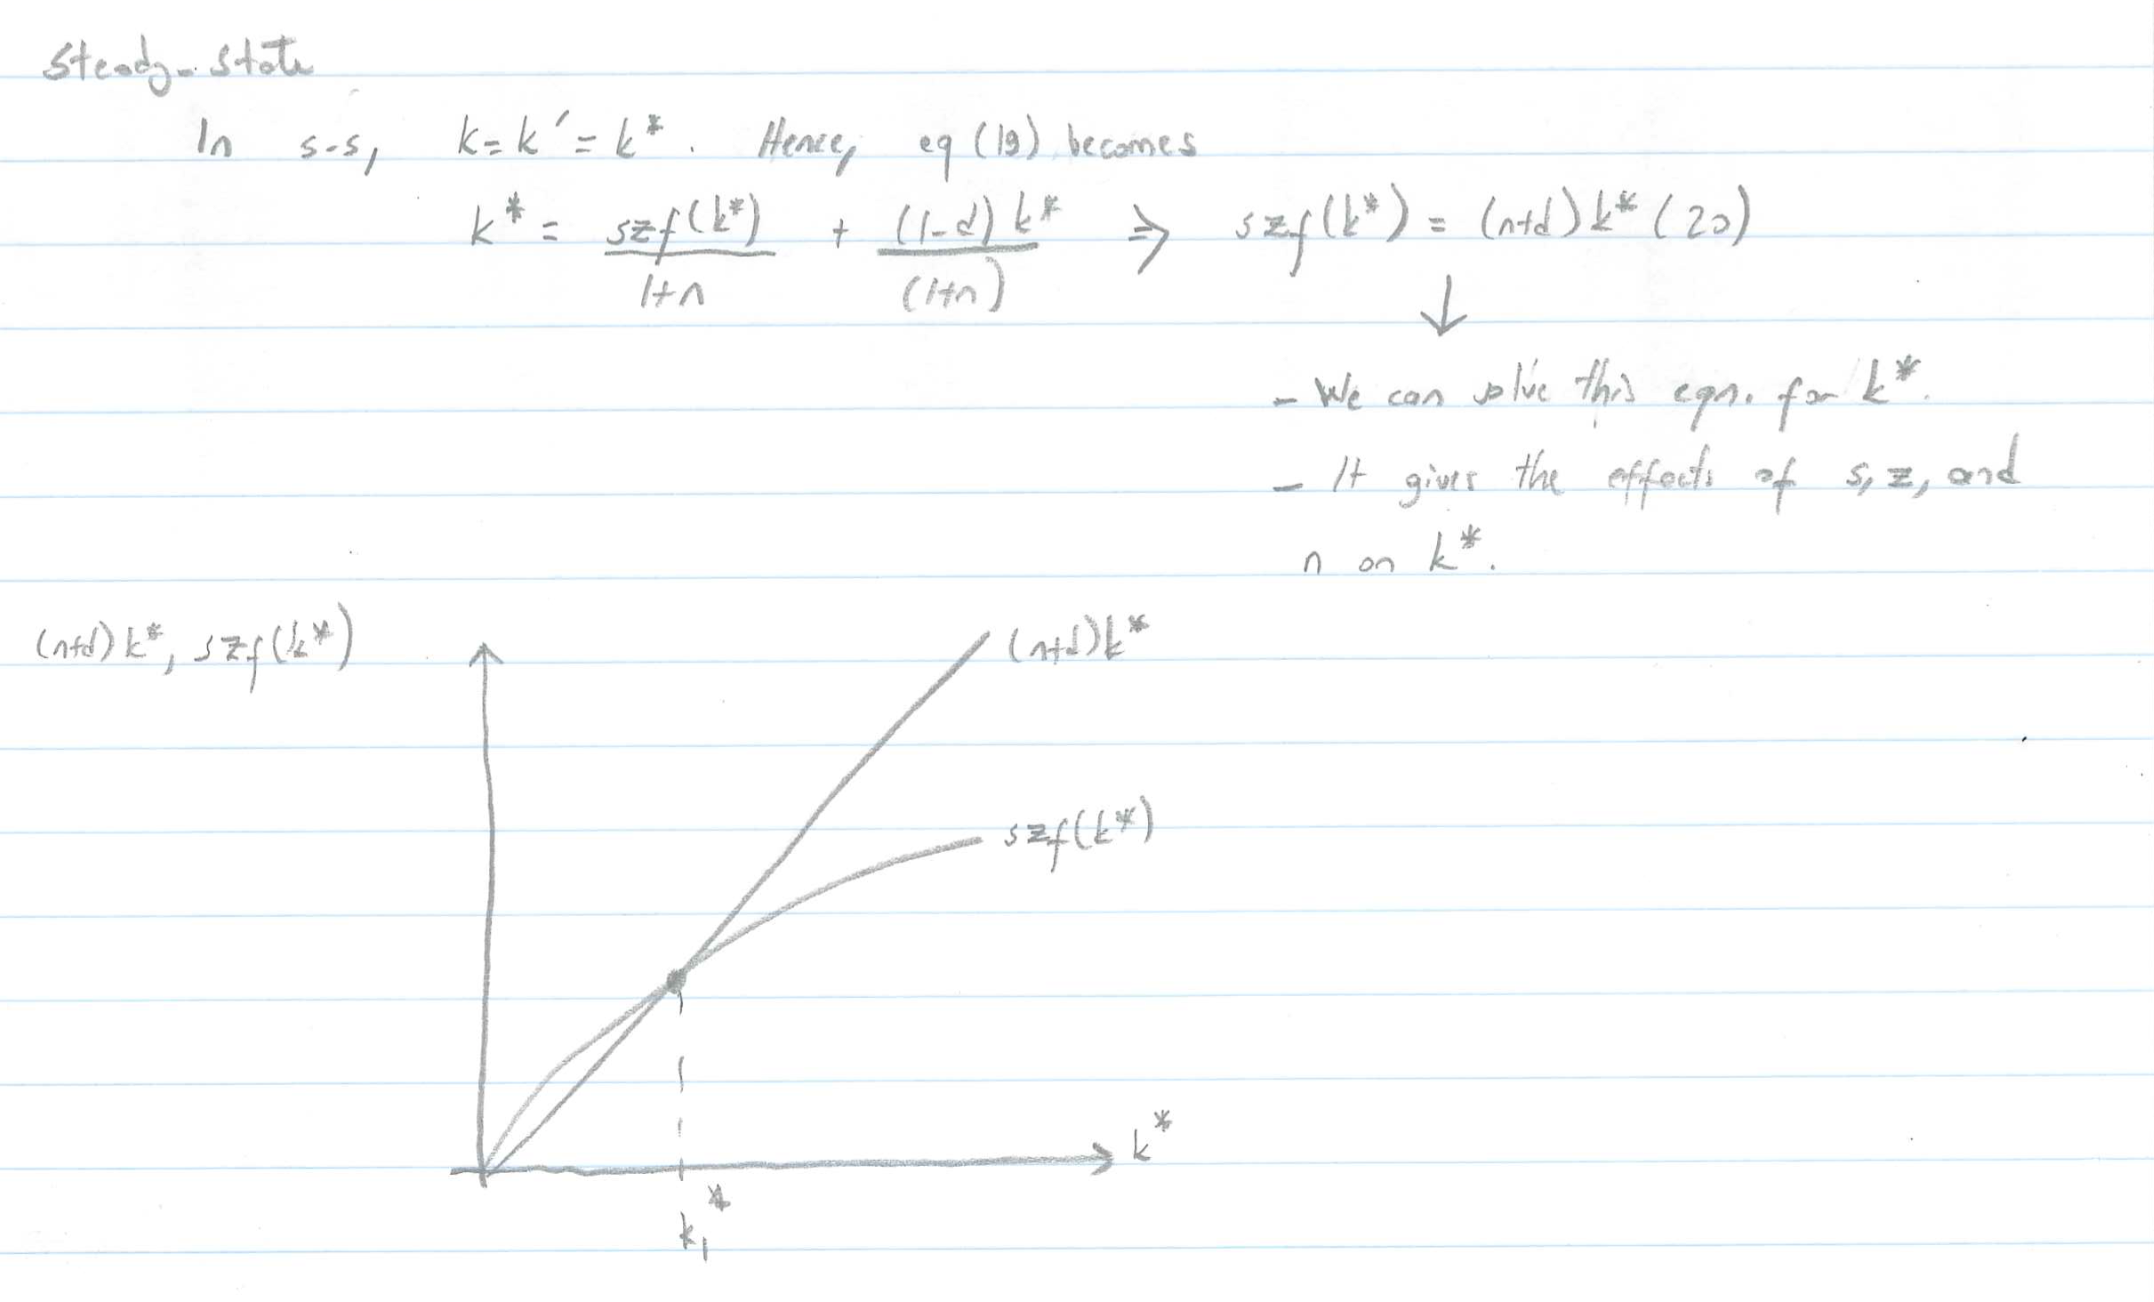 Steady-state
In s-s, k = k' = k*. Hence, eq (19) becomes
k* = szf(k*)/1+n + (1-d)k*/(1+n) ⇒ szf(k*) = (n+d)k* (20)
↓
- We can solve this eqn. for k*.
- It gives the effects of s, z, and
n on k*.
(n+d)k*, szf(k*)
(n+d)k*
szf(k*)
k*
k₁*